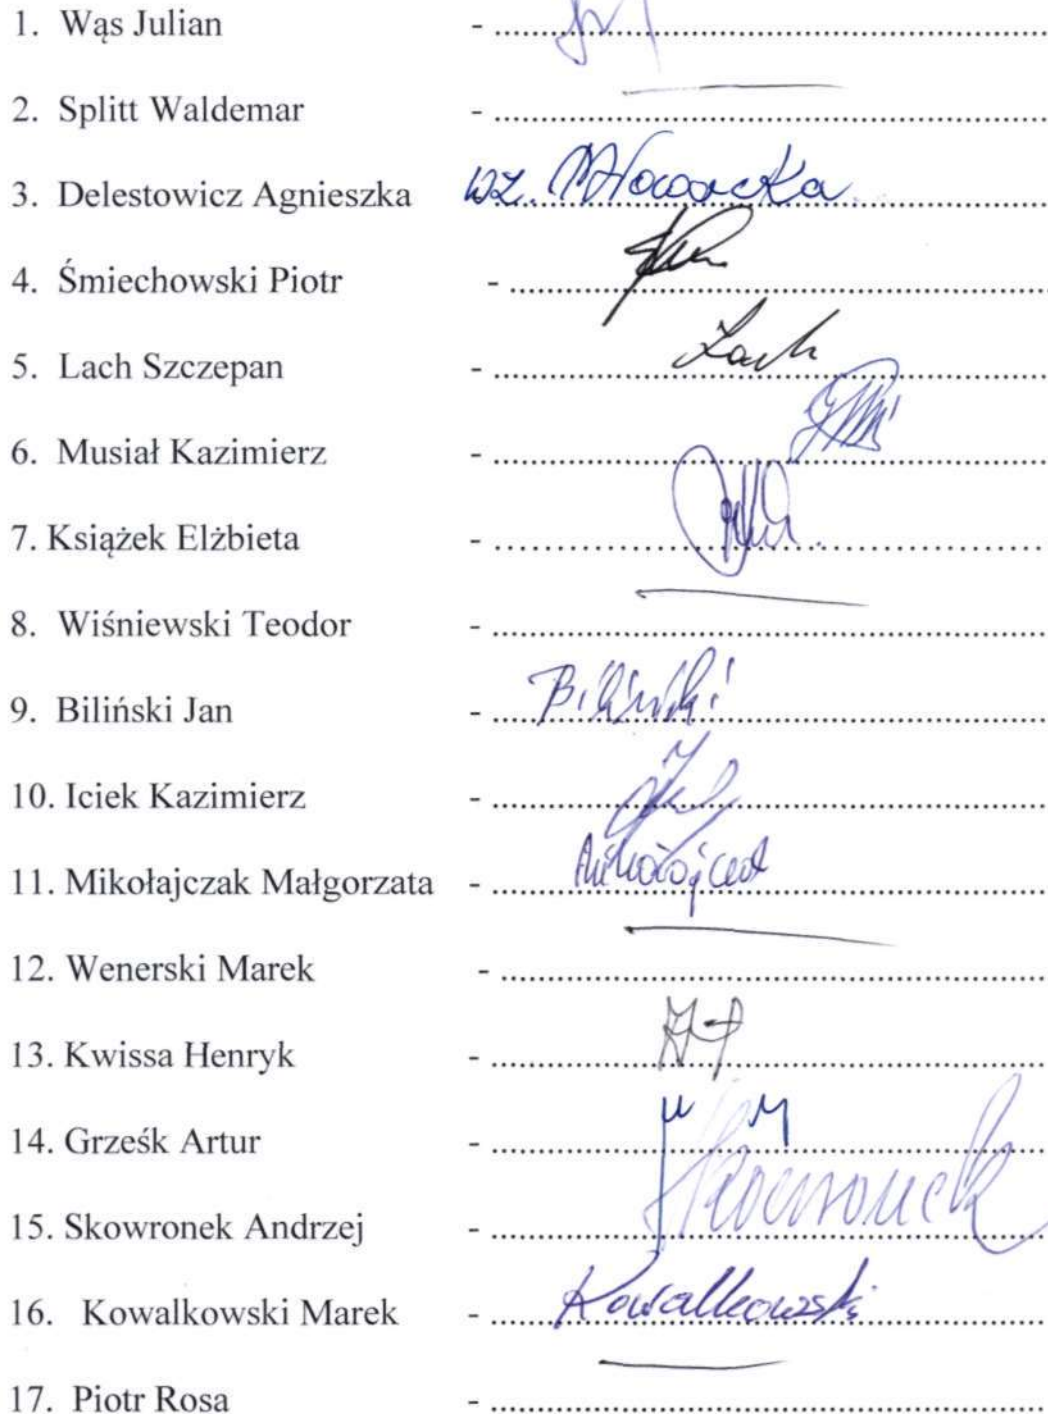 1. Wąs Julian - ........................................
2. Splitt Waldemar - ........................................
3. Delestowicz Agnieszka wz. MNowacka ....................
4. Śmiechowski Piotr - ........................................
5. Lach Szczepan - .................... Lach ....................
6. Musiał Kazimierz - ........................................
7. Książek Elżbieta - ........................................
8. Wiśniewski Teodor - ........................................
9. Biliński Jan - .... Biliński ....................
10. Iciek Kazimierz - ........................................
11. Mikołajczak Małgorzata - ........ Mikołajczak ....................
12. Wenerski Marek - ........................................
13. Kwissa Henryk - ........................................
14. Grześk Artur - ........................................
15. Skowronek Andrzej - .................... Skowronek
16. Kowalkowski Marek - ........ Kowalkowski ....................
17. Piotr Rosa - ........................................